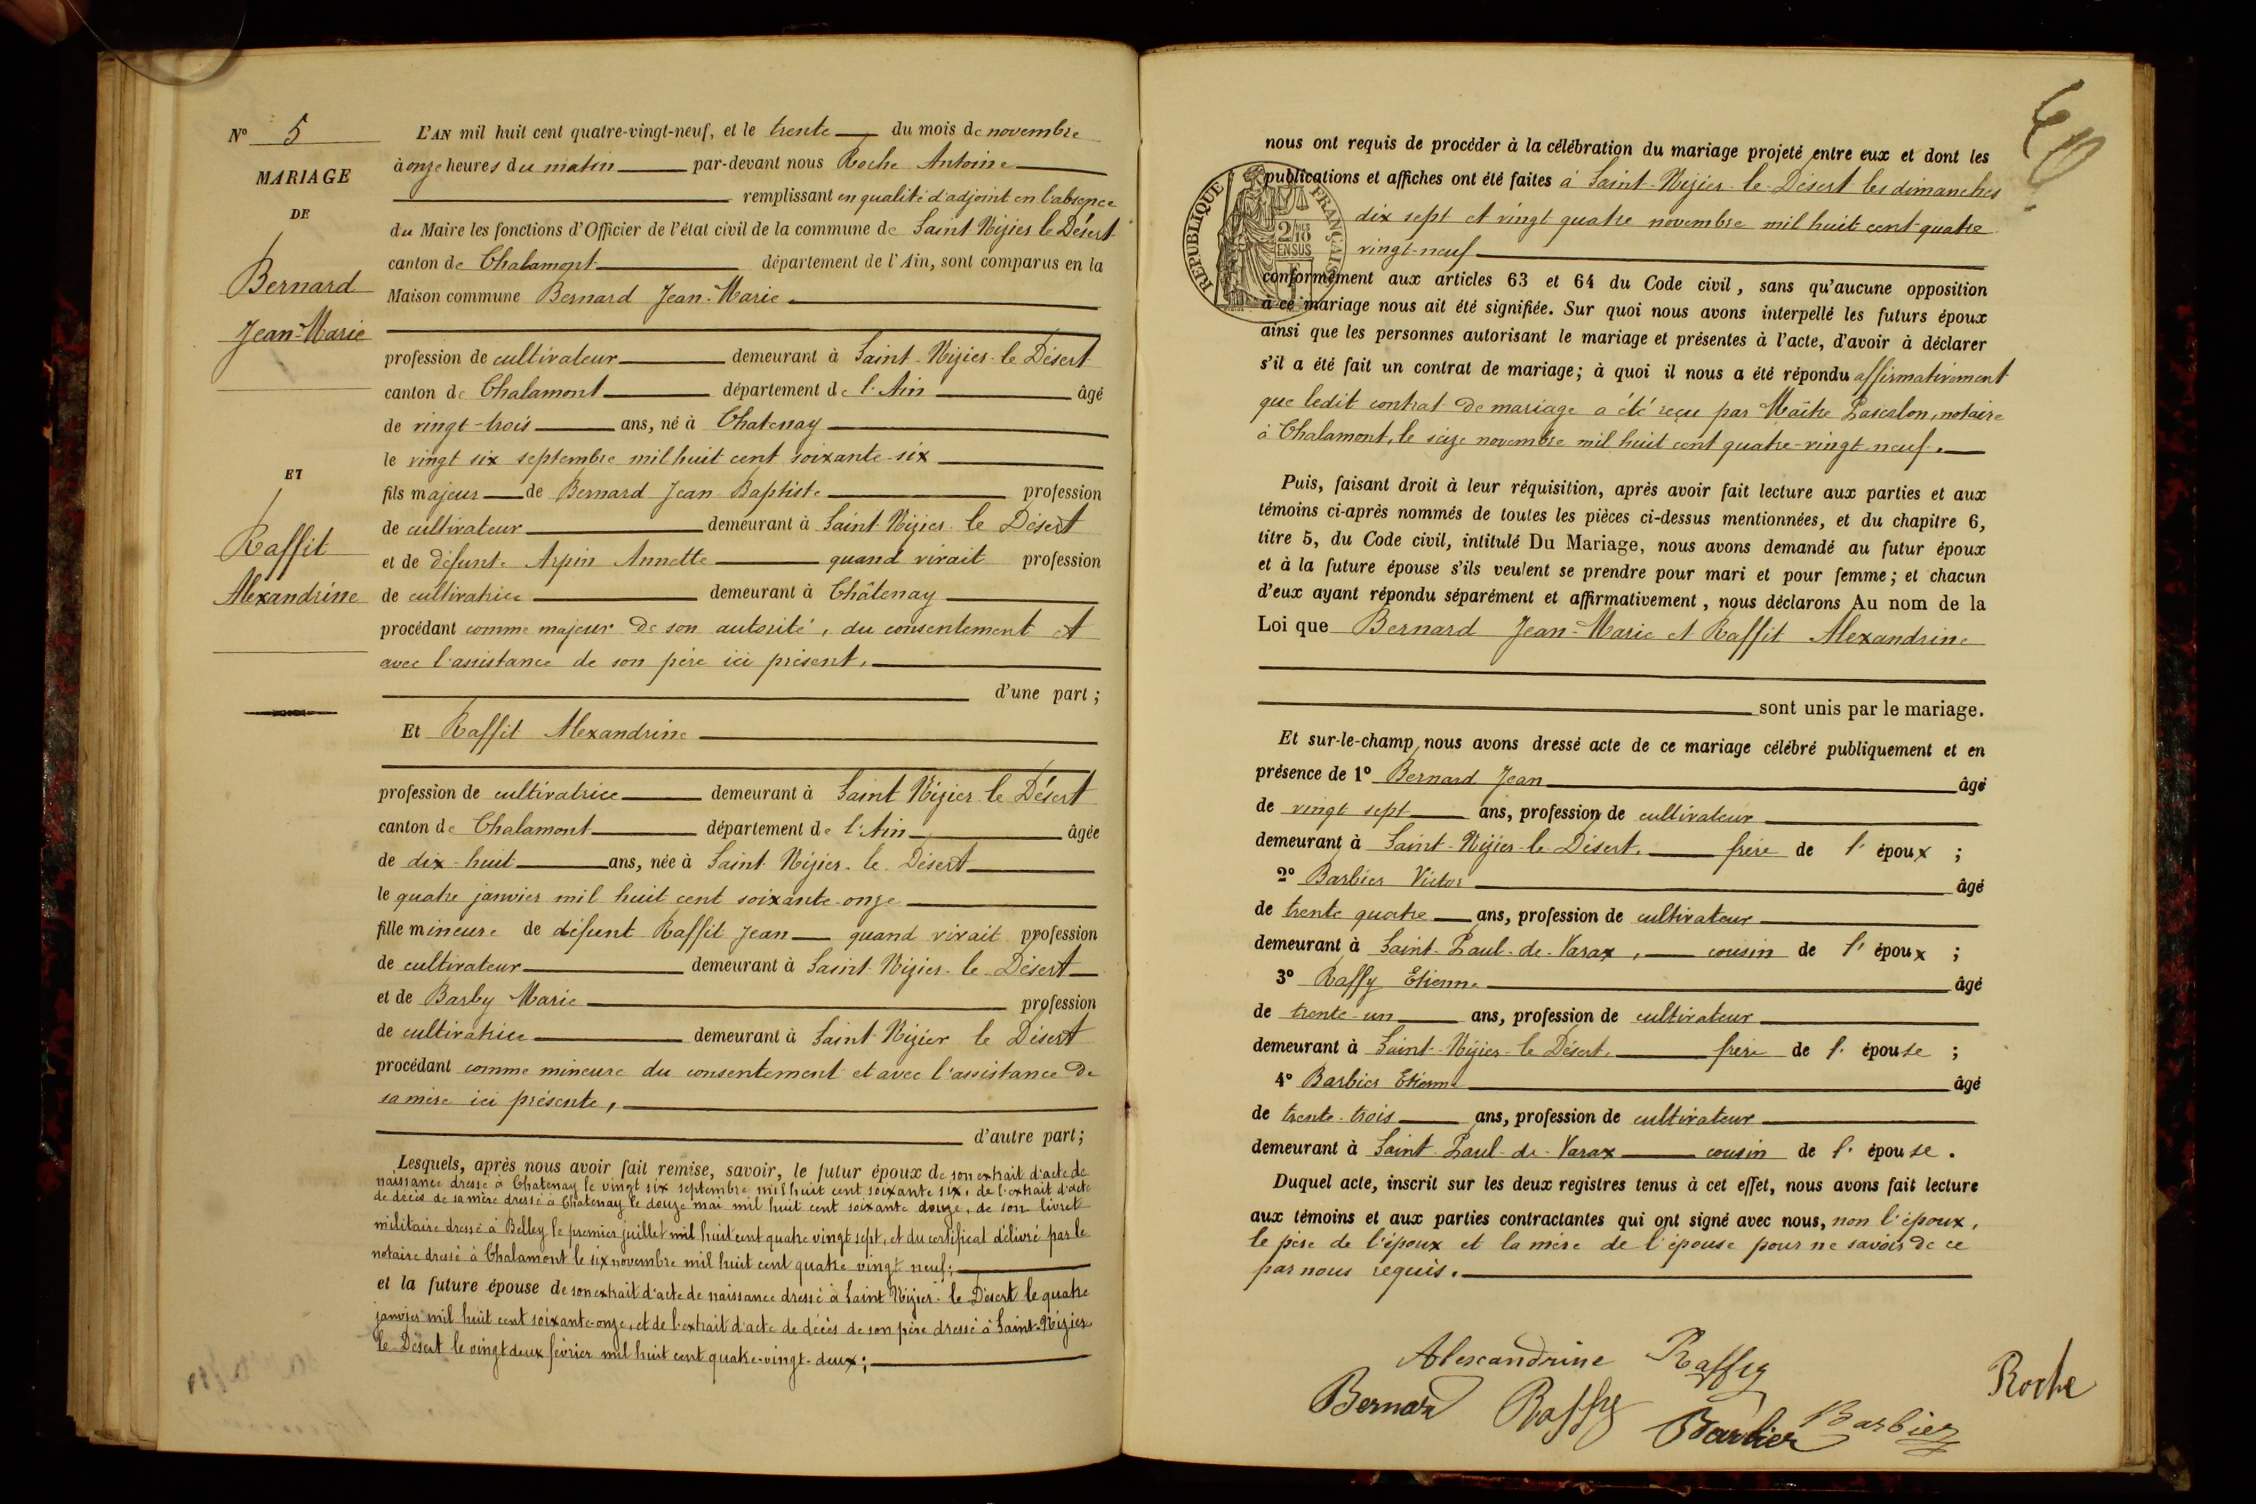 N° 5
MARIAGE
DE
Bernard
Jean-Marie
ET
Raffit
Alexandrine
L'AN mil huit cent quatre-vingt-neuf, et le trente du mois de novembre
à onze heures du matin par-devant nous Roche Antoine
remplissant en qualité d'adjoint en l'absence
du Maire les fonctions d'Officier de l'état civil de la commune de Saint Nizier le Désert
canton de Chalamont département de l'Ain, sont comparus en la
Maison commune Bernard Jean-Marie
profession de cultivateur demeurant à Saint-Nizier-le Désert
canton de Chalamont département de l'Ain âgé
de vingt-trois ans, né à Chatenay
le vingt six septembre mil huit cent soixante-six
fils majeur de Bernard Jean Baptiste profession
de cultivateur demeurant à Saint-Nizier-le Désert
et de défunte Arpin Annette quand vivait profession
de cultivatrice demeurant à Châtenay
procédant comme majeur de son autorité, du consentement et
avec l'assistance de son père ici présent,
d'une part;
Et Raffit Alexandrine
profession de cultivatrice demeurant à Saint Nizier le Désert
canton de Chalamont département de l'Ain âgée
de dix-huit ans, née à Saint Nizier-le Désert
le quatre janvier mil huit cent soixante-onze
fille mineure de défunt Raffit Jean quand vivait profession
de cultivateur demeurant à Saint-Nizier-le Désert
et de Barby Marie profession
de cultivatrice demeurant à Saint-Nizier le Désert
procédant comme mineure du consentement et avec l'assistance de
sa mère ici présente,
d'autre part;
Lesquels, après nous avoir fait remise, savoir, le futur époux de son extrait d'acte de
naissance dressé à Chatenay le vingt six septembre mil huit cent soixante six, de l'extrait d'acte
de décès de sa mère dressé à Chatenay le douze mai mil huit cent soixante douze, de son livret
militaire dressé à Belley le premier juillet mil huit cent quatre vingt sept, et du certificat délivré par le
notaire dressé à Chalamont le six novembre mil huit cent quatre vingt neuf;
et la future épouse de son extrait d'acte de naissance dressé à Saint Nizier-le Désert le quatre
janvier mil huit cent soixante-onze, et de l'extrait d'acte de décès de son père dressé à Saint-Nizier
le Désert le vingt deux février mil huit cent quatre-vingt-deux;
REPUBLIQUE FRANÇAISE
2/10 EN SUS
nous ont requis de procéder à la célébration du mariage projeté entre eux et dont les
publications et affiches ont été faites à Saint-Nizier-le-Désert les dimanches
dix sept et vingt quatre novembre mil huit cent quatre
vingt-neuf
conformément aux articles 63 et 64 du Code civil, sans qu'aucune opposition
à ce mariage nous ait été signifiée. Sur quoi nous avons interpellé les futurs époux
ainsi que les personnes autorisant le mariage et présentes à l'acte, d'avoir à déclarer
s'il a été fait un contrat de mariage; à quoi il nous a été répondu affirmativement
que ledit contrat de mariage a été reçu par Maître Lascalon, notaire
à Chalamont, le seize novembre mil huit cent quatre-vingt-neuf.
Puis, faisant droit à leur réquisition, après avoir fait lecture aux parties et aux
témoins ci-après nommés de toutes les pièces ci-dessus mentionnées, et du chapitre 6,
titre 5, du Code civil, intitulé Du Mariage, nous avons demandé au futur époux
et à la future épouse s'ils veulent se prendre pour mari et pour femme; et chacun
d'eux ayant répondu séparément et affirmativement, nous déclarons Au nom de la
Loi que Bernard Jean-Marie et Raffit Alexandrine
sont unis par le mariage.
Et sur-le-champ nous avons dressé acte de ce mariage célébré publiquement et en
présence de 1° Bernard Jean âgé
de vingt sept ans, profession de cultivateur
demeurant à Saint-Nizier-le Désert, frère de l'époux;
2° Barbier Victor âgé
de trente quatre ans, profession de cultivateur
demeurant à Saint-Paul-de-Varax, cousin de l'époux;
3° Raffy Etienne âgé
de trente-un ans, profession de cultivateur
demeurant à Saint-Nizier-le Désert, frère de l'épouse;
4° Barbier Etienne âgé
de trente-trois ans, profession de cultivateur
demeurant à Saint-Paul-de-Varax cousin de l'épouse.
Duquel acte, inscrit sur les deux registres tenus à cet effet, nous avons fait lecture
aux témoins et aux parties contractantes qui ont signé avec nous, non l'époux,
le père de l'époux et la mère de l'épouse pour ne savoir de ce
par nous requis.
Alexandrine Raffy
Roche
Bernard Raffy Barbier Barbier